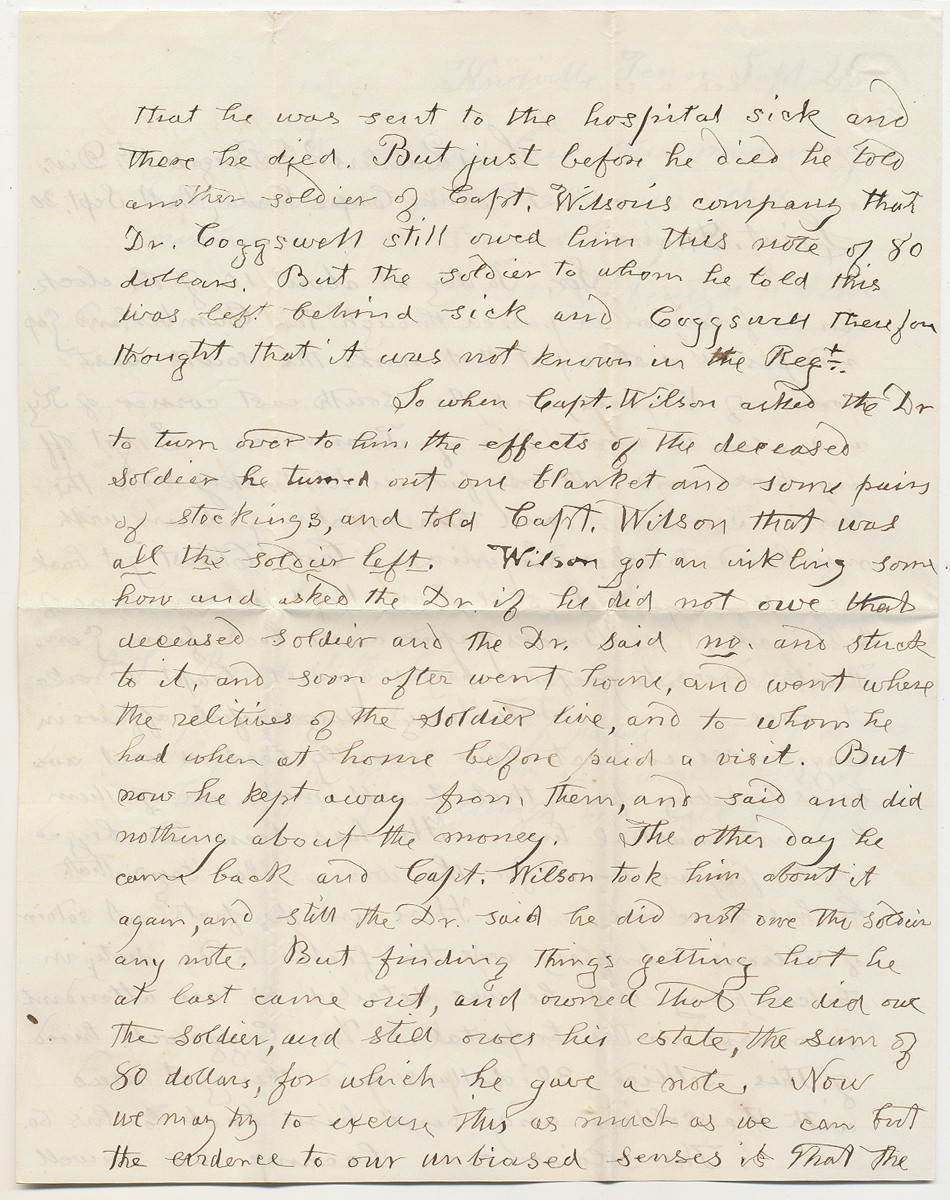 that he was sent to the hospital sick and
there he died. But just before he died he told
another soldier of Capt. Wilson's company that
Dr. Coggswell still owed him this note of 80
dollars. But the soldier to whom he told this
was left behind sick and Coggswell therefore
thought that it was not known in the Regt.
So when Capt. Wilson asked the Dr
to turn over to him the effects of the deceased
soldier he turned out one blanket and some pairs
of stockings, and told Capt. Wilson that was
all the soldier left. Wilson got an inkling some
how and asked the Dr. if he did not owe that
deceased soldier and the Dr. said no. and stuck
to it, and soon after went home, and went where
the relitives of the soldier live, and to whom he
had when at home before paid a visit. But
now he kept away from them, and said and did
nothing about the money. The other day he
came back and Capt. Wilson took him about it
again, and still the Dr. said he did not owe the soldier
any note. But finding things getting hot he
at last came out, and owned that he did owe
the soldier, and still owes his estate, the sum of
80 dollars, for which he gave a note. Now
we may try to excuse this as much as we can but
the evidence to our unbiased senses is that the